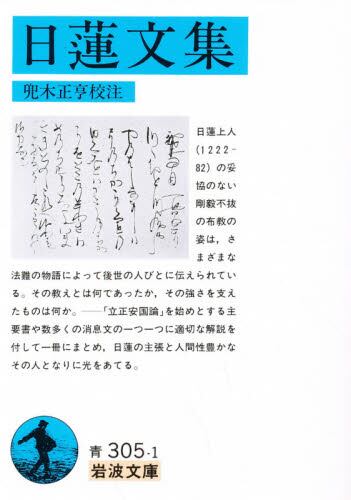 日蓮文集
兜木正亨校注
日蓮上人
(1222-
82)の妥
協のない
剛毅不抜
の布教の
姿は，さ
まざまな
法難の物語によって後世の人びとに伝えられてい
る。その教えとは何であったか，その強さを支え
たものは何か。――「立正安国論」を始めとする主
要書や数多くの消息文の一つ一つに適切な解説を
付して一冊にまとめ，日蓮の主張と人間性豊かな
その人となりに光をあてる。
青 305-1
岩波文庫